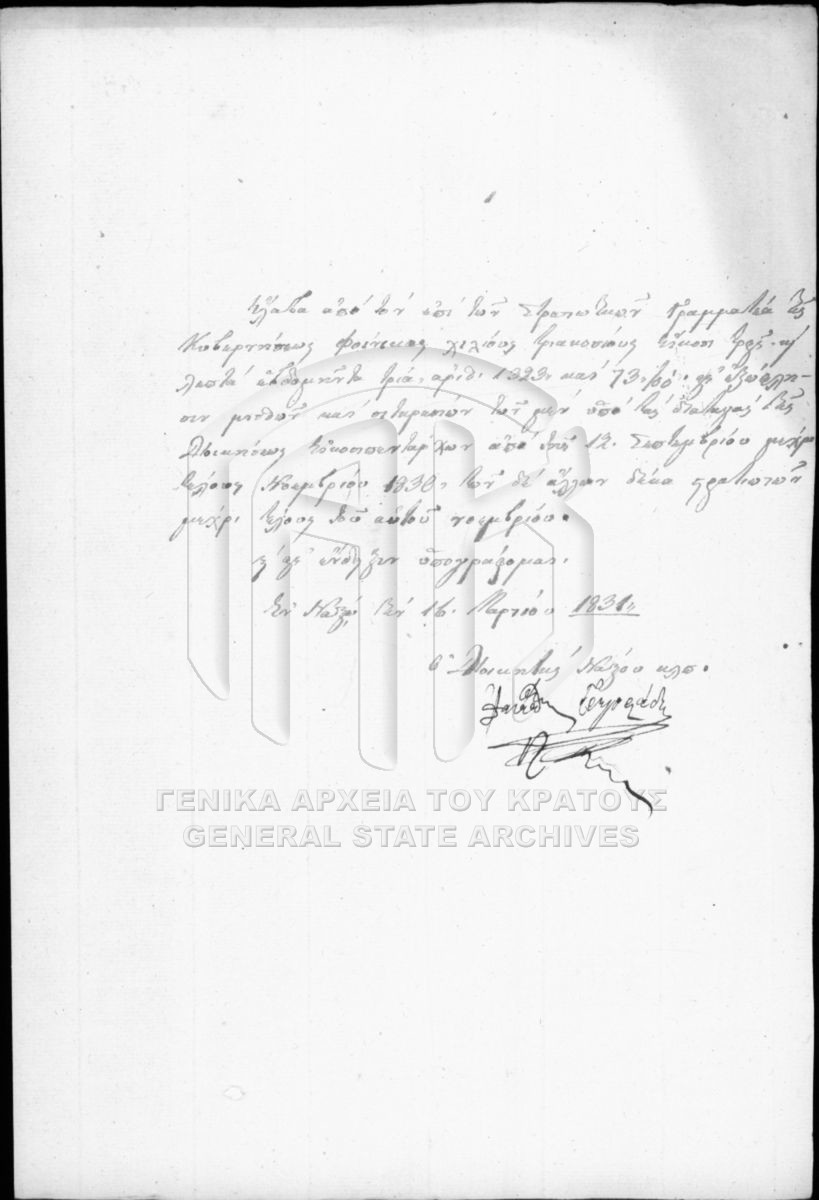 Ἔλαβα ἀπὸ τὸν ἐπὶ τῶν Στρατιωτικῶν Γραμματέα τῆς
Κυβερνήσεως Φοίνικας χιλίους τριακοσίους εἴκοσι τρεῖς καὶ
λεπτὰ ἑβδομῆντα τρία, ἀριθ: 1323, καὶ 73 εἰς ἐξώφλη-
σιν μισθῶν καὶ σιτηρεσίων τῶν μὲν ὑπὸ τὰς διαταγὰς τῆς
Διοικήσεως εἰκοσιπεντάρχων ἀπὸ τῆς 12. Σεπτεμβρίου μέχρι
τέλους Νοεμβρίου 1830, τῶν δὲ ἄλλων δέκα στρατιωτῶν
μέχρι τέλους τοῦ αὐτοῦ νοεμβρίου.
καὶ εἰς ἔνδειξιν ὑπογράφομαι.
Ἐν Νάξῳ τὴν 16. Μαρτίου 1831,,
ὁ Διοικητὴς Νάξου κλπ.
ΓΕΝΙΚΑ ΑΡΧΕΙΑ ΤΟΥ ΚΡΑΤΟΥΣ
GENERAL STATE ARCHIVES